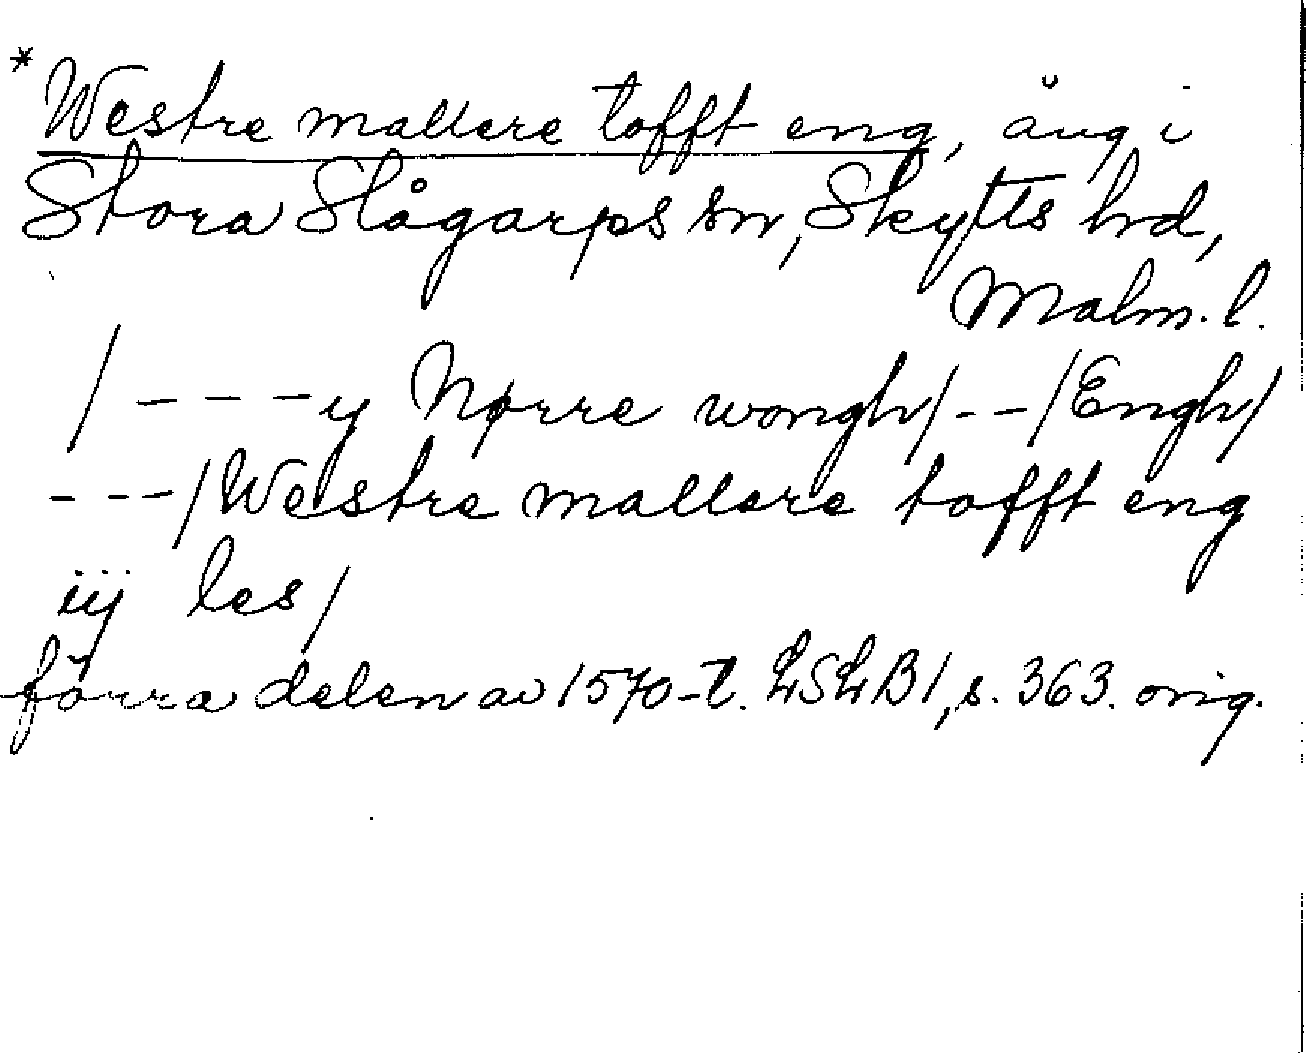 * Westre mallere tofft eng, äng i
Stora Slågarps sn, Skytts hd,
Malm. l.
/ - - - y Nørre wongh/ - - /Engh/
- - - /Westre mallere tofft eng
iij les/
förra delen av 1570-t. LSLB1, s. 363. orig.